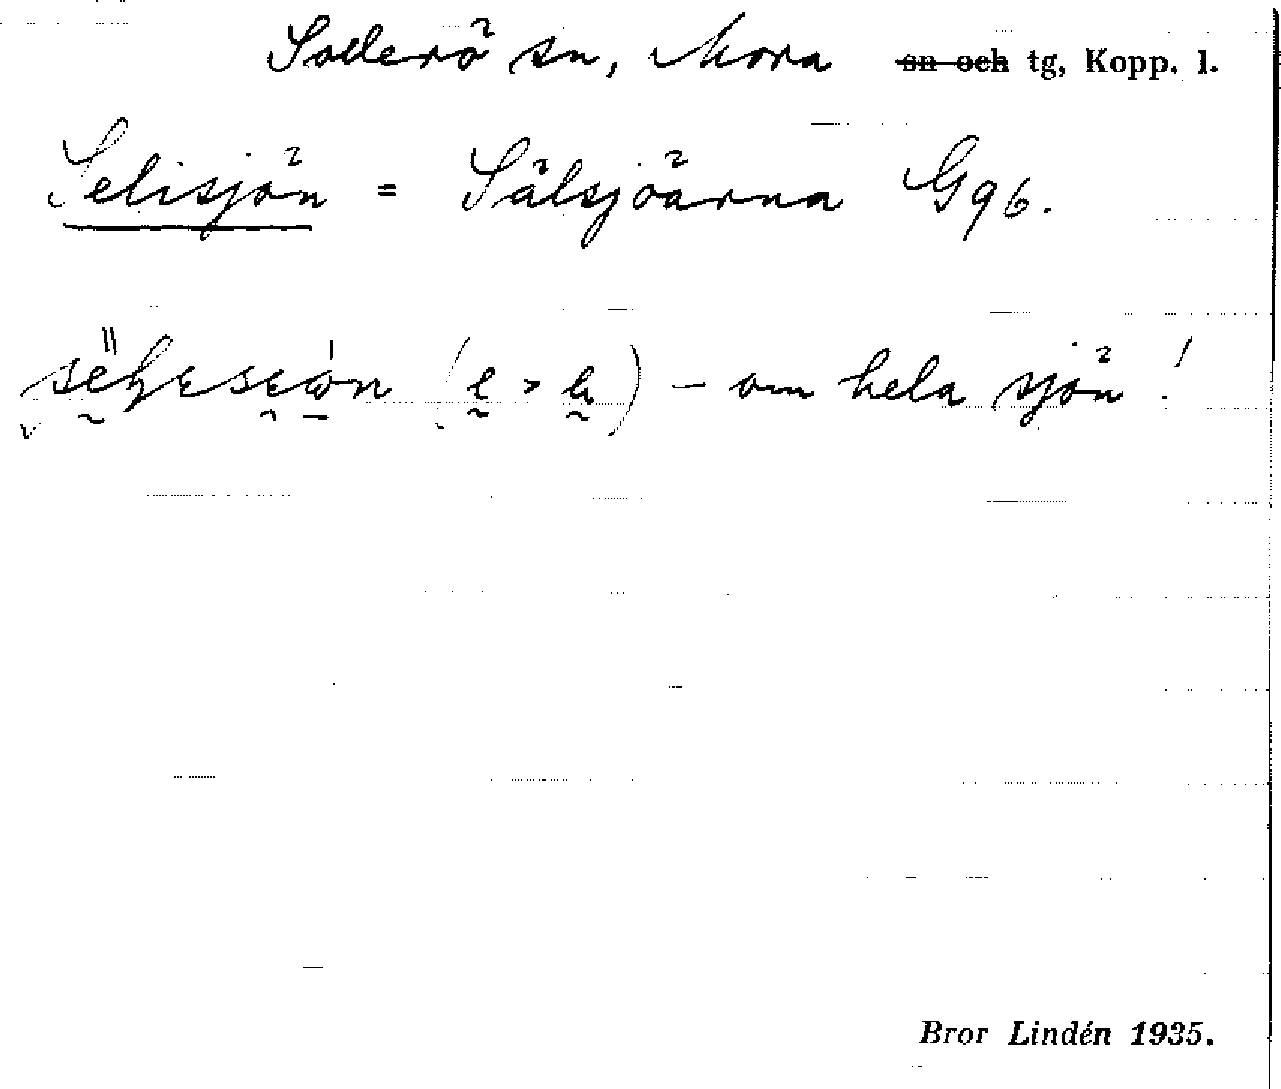 Sollerö sn, Mora sn och tg, Kopp. l.
Selisjön = Sälsjöarna G96.
– om hela sjön!
Bror Lindén 1935.